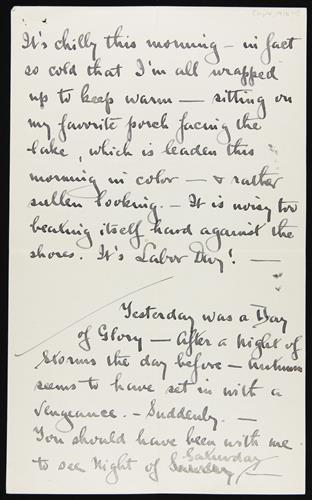 It's chilly this morning — in fact
so cold that I'm all wrapped
up to keep warm — sitting on
my favorite porch facing the
lake, which is leaden this
morning in color — & rather
sullen looking. — It is noisy too
beating itself hard against the
shores. It's Labor Day! —
Yesterday was a Day
of Glory — After a night of
storms the day before — Autumn
seems to have set in with a
vengeance. — Suddenly. —
You should have been with me
Saturday
to see night of Sunday —